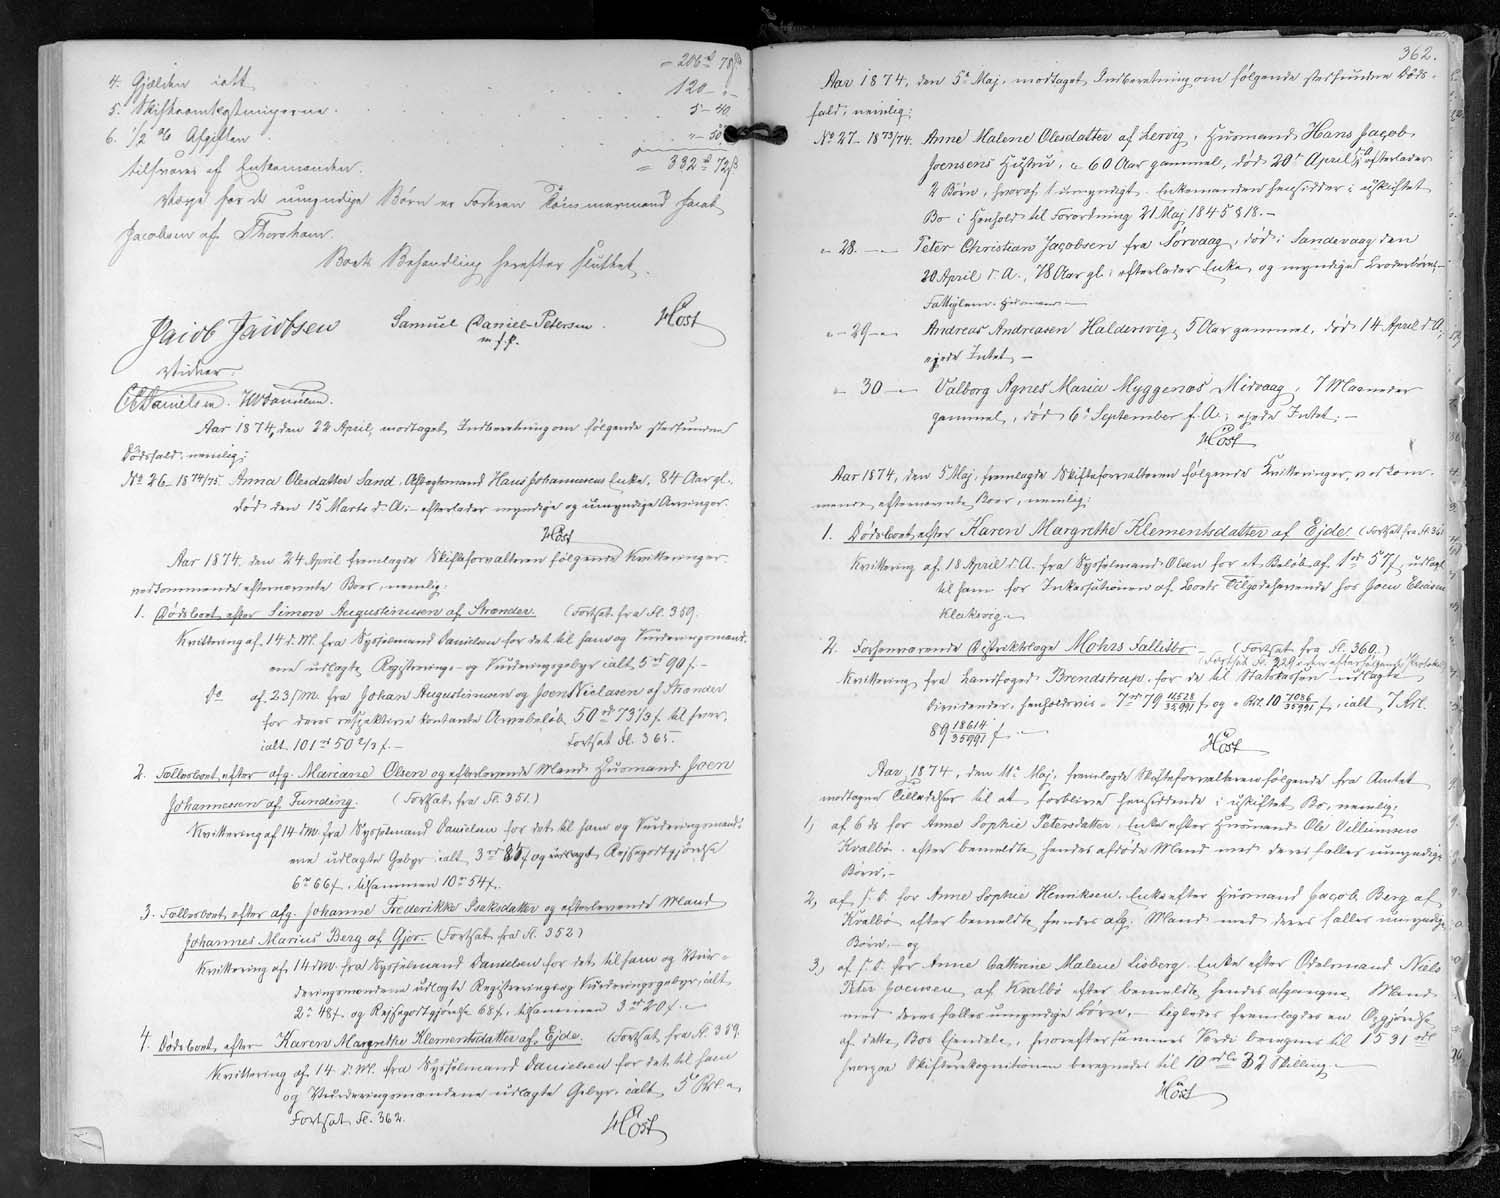 = 206 rd 78 ß
4. Gjælden ialt . . . 120 - " -
5. Skifteomkostningerne . . . 5 - 40
6. 1/2 % Afgiften . . . " - 50
= 332 rd 72 ß
tilsvares af Enkemanden.
Værge for de umyndige Børn er Faderen Tømmermand Jacob
Jacobsen af Thorshavn.
Boets Behandling herefter sluttet.
Jacob Jacobsen Samuel Daniel Petersen Høst
m. f. P.
Vidner:
Danielsen. Danielsen.
Aar 1874, den 22 April, modtaget Indberetning om følgende stedfundne
Dødsfald, nemlig:
No 26 - 1874/75 Anna Olesdatter Sand, Aftægtsmand Hans Johannesens Enke, 84 Aar gl.,
død den 15 Marts d. A. - efterlader myndige og umyndige Arvinger.
Høst
Aar 1874, den 24 April fremlagde Skifteforvalteren følgende Kvitteringer
vedkommende efternævnte Boer, nemlig:
1. Dødsboet efter Simon Augustinussen af Strænder. (Fortsat fra Fl. 359.
Kvittering af 14 d. M. fra Sysselmand Danielsen for det til ham og Vurderingsmænd-
ene udlagte Registrerings- og Vurderingsgebyr ialt 5 rd 90 ß. -
do af 23/M. fra Johan Augustinussen og Joen Niclasen af Strænder
for deres respektive kontante Arvebeløb 50 rd 73 1/3 ß til hver,
ialt 101 rd 50 2/3 ß. - Fortsat Fl. 365.
2. Fællesboet efter afg. Mariane Olsen og efterlevende Mand Husmand Joen
Johannessen af Funding. (Fortsat fra Fl. 351.)
Kvittering af 14 d M. fra Sysselmand Danielsen for det til ham og Vurderingsmænd-
ene udlagte Gebyr ialt 3 rd 8 ß og udlagt Reisegodtgjørelse
6 rd 66 ß, tilsammen 10 rd 54 ß.
3. Fællesboet efter afg. Johanne Frederikke Isaksdatter og efterlevende Mand
Johannes Marius Berg af Gjov. (Fortsat fra Fl. 352)
Kvittering af 14 d M. fra Sysselmand Danielsen for det til ham og Vur-
deringsmændene udlagte Registrerings og Vurderingsgebyr, ialt
2 rd 48 ß. og Rejsegodtgjørelse 68 ß., tilsammen 3 rd 20 ß. -
4. Dødsboet efter Karen Margrethe Klementsdatter af Ejde. (Fortsat fra Fl. 359.
Kvittering af 14 d. M. fra Sysselmand Danielsen for det til ham
og Vurderingsmændene udlagte Gebyr, ialt 5 Rd. "
Fortsat Fl. 362.
Høst
362.
Aar 1874, den 5te Maj, modtaget Indberetning om følgende stedfundne Døds-
fald; nemlig:
No 27 - 1873/74. Anne Malene Olesdatter af Lervig, Husmand Hans Jacob
Joensens Hustru, c. 60 Aar gammel, død 20de April d. A. efterlader
2 Børn, hvoraf 1 umyndigt. Enkemanden hensidder i uskiftet
Bo i Henhold til Forordning 21 Maj 1845 § 18. -
" 28. - Peter Christian Jacobsen fra Sørvaag, død i Sandevaag den
20 April d. A., 78 Aar gl., efterlader Enke og myndige Broderbørn. -
Fattiglem.
" - 29 - " Andreas Andreasen Haldersvig, 5 Aar gammel, død 14 April d. A.,
ejede Intet. -
" 30 - " Valborg Agnes Maria Myggenæs Midvaag, 7 Maaneder
gammel, død 6te September f. A.; ejede Intet. -
Høst
Aar 1874, den 5 Maj, fremlagde Skifteforvalteren følgende Kvitteringer, vedkom-
mende efternævnte Boer, nemlig:
1. Dødsboet efter Karen Margrethe Klementsdatter af Ejde (Fortsat fra Fl. 361
Kvittering af 18 April d. A. fra Sysselmand Olsen for et Beløb af 1 rd 57 ß, udlagt
til ham for Inkassationen af Boets Tilgodehavende hos Joen Eliasen
Klaksvig. -
2. Forhenværende Distriktslæge Mohrs Fallitbo - (Fortsat fra Fl. 360.)
(Fortsat Fl. 229 i den efterfølgende Protokol
Kvittering fra Landfoged Brendstrup for de til Statskassen udlagte
Dividender, henholdsvis = 7 rd 79 11528/35991 ß og " Rd. 10 7086/35991 ß, ialt 7 Rd.
89 18614/35991 ß. -
Høst
Aar 1874, den 11te Maj, fremlagde Skifteforvalteren følgende fra Amtet
modtagne Tilladelser til at forblive hensiddende i uskiftet Bo, nemlig:
1, af 6 ds for Anne Sophie Petersdatter, Enke efter Husmand Ole Villumsen
Kvalbø, efter bemeldte hendes afdøde Mand med deres fælles umyndige
Børn, -
2, af s. D. for Anne Sophie Henriksen, Enke efter Husmand Jacob Berg af
Kvalbø efter bemeldte hendes afg. Mand med deres fælles umyndige
Børn, - og
3, af s. D. for Anne Cathrine Malene Lisberg, Enke efter Odelsmand Niels
Peter Joensen af Kvalbø efter bemeldte hendes afgangne Mand
med deres fælles umyndige Børn. - Ligledes fremlagdes en Opgjørelse
af dette Bos Ejendele, hvorefter sammes Værdi beregnes til 1531 rd
hvorpaa Skifterekognitionen beregnedes til 10 rd 32 Skilling. -
Høst